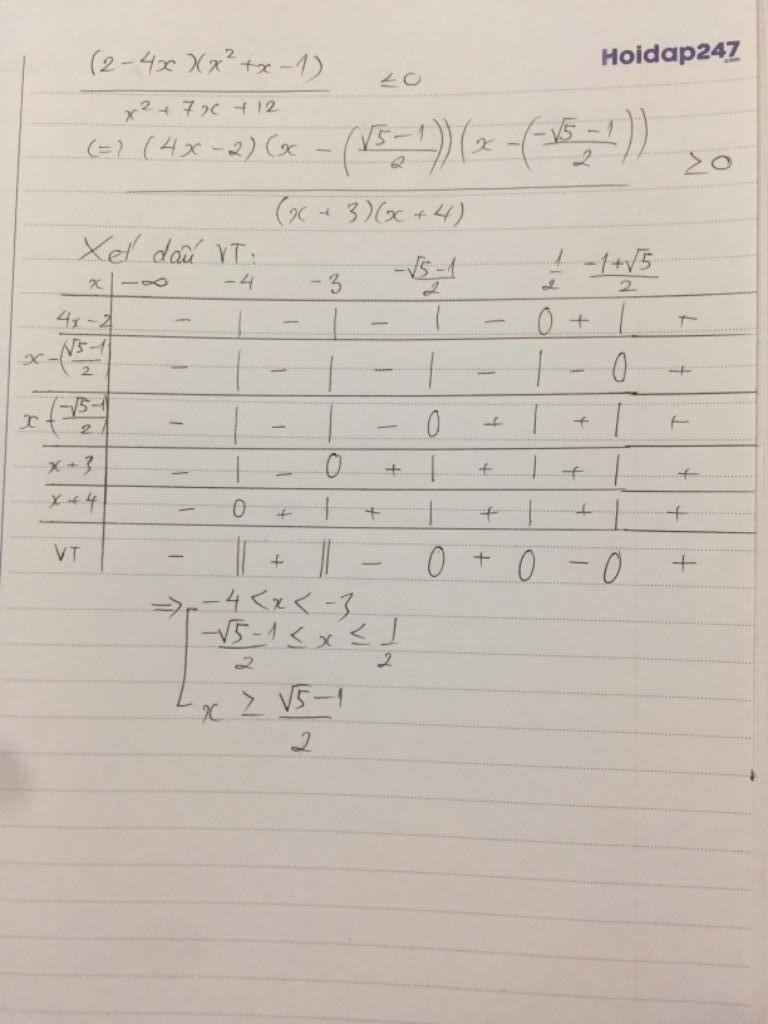 Hoidap247
.com
(2-4x)(x²+x-1) / x²+7x+12 ≤0
(=) (4x-2)(x-(√5-1/2))(x-(-√5-1/2)) / (x+3)(x+4) ≥0
Xét dấu VT:
x | -∞ -4 -3 -√5-1/2 1/2 -1+√5/2
4x-2 | - | - | - | - 0 + | +
x-(√5-1/2) | - | - | - | - | - 0 +
x-(-√5-1/2) | - | - | - 0 + | + | +
x+3 | - | - 0 + | + | + | +
x+4 | - 0 + | + | + | + | +
VT | - || + || - 0 + 0 - 0 +
=> [ -4<x<-3
-√5-1/2 ≤ x ≤ 1/2
x ≥ √5-1/2